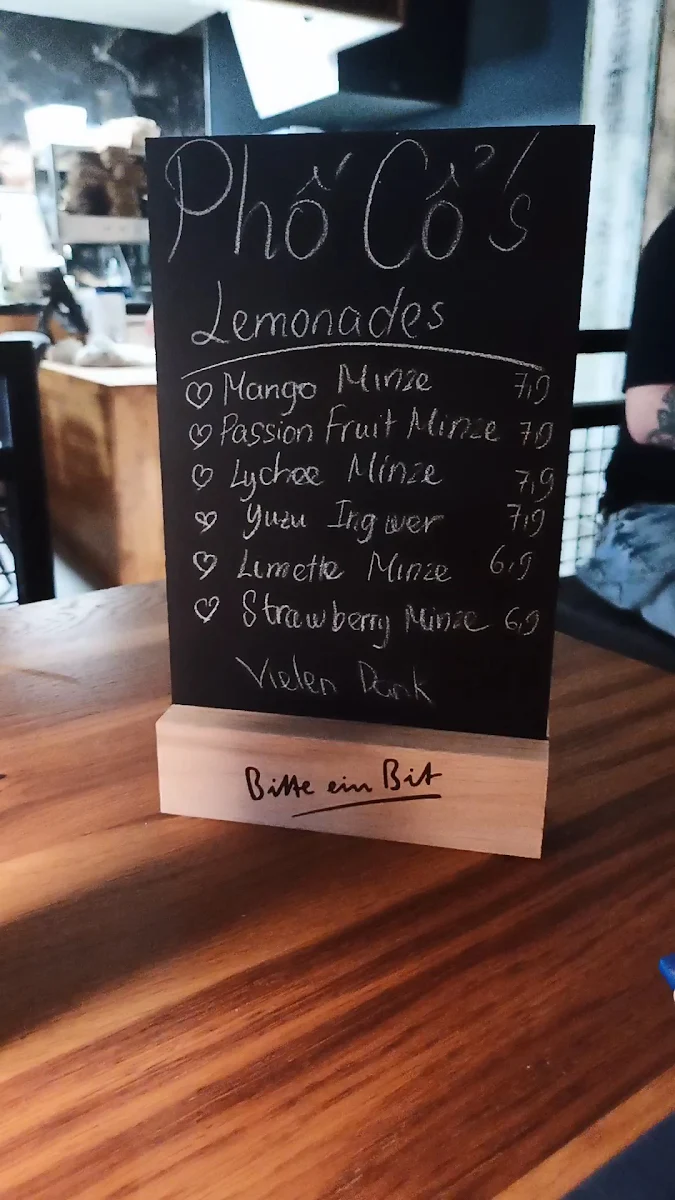 Phố Cổ's
Lemonades
♡ Mango Minze 7,9
♡ Passion Fruit Minze 7,9
♡ Lychee Minze 7,9
♡ Yuzu Ingwer 7,9
♡ Limette Minze 6,9
♡ Strawberry Minze 6,9
Vielen Dank
Bitte ein Bit